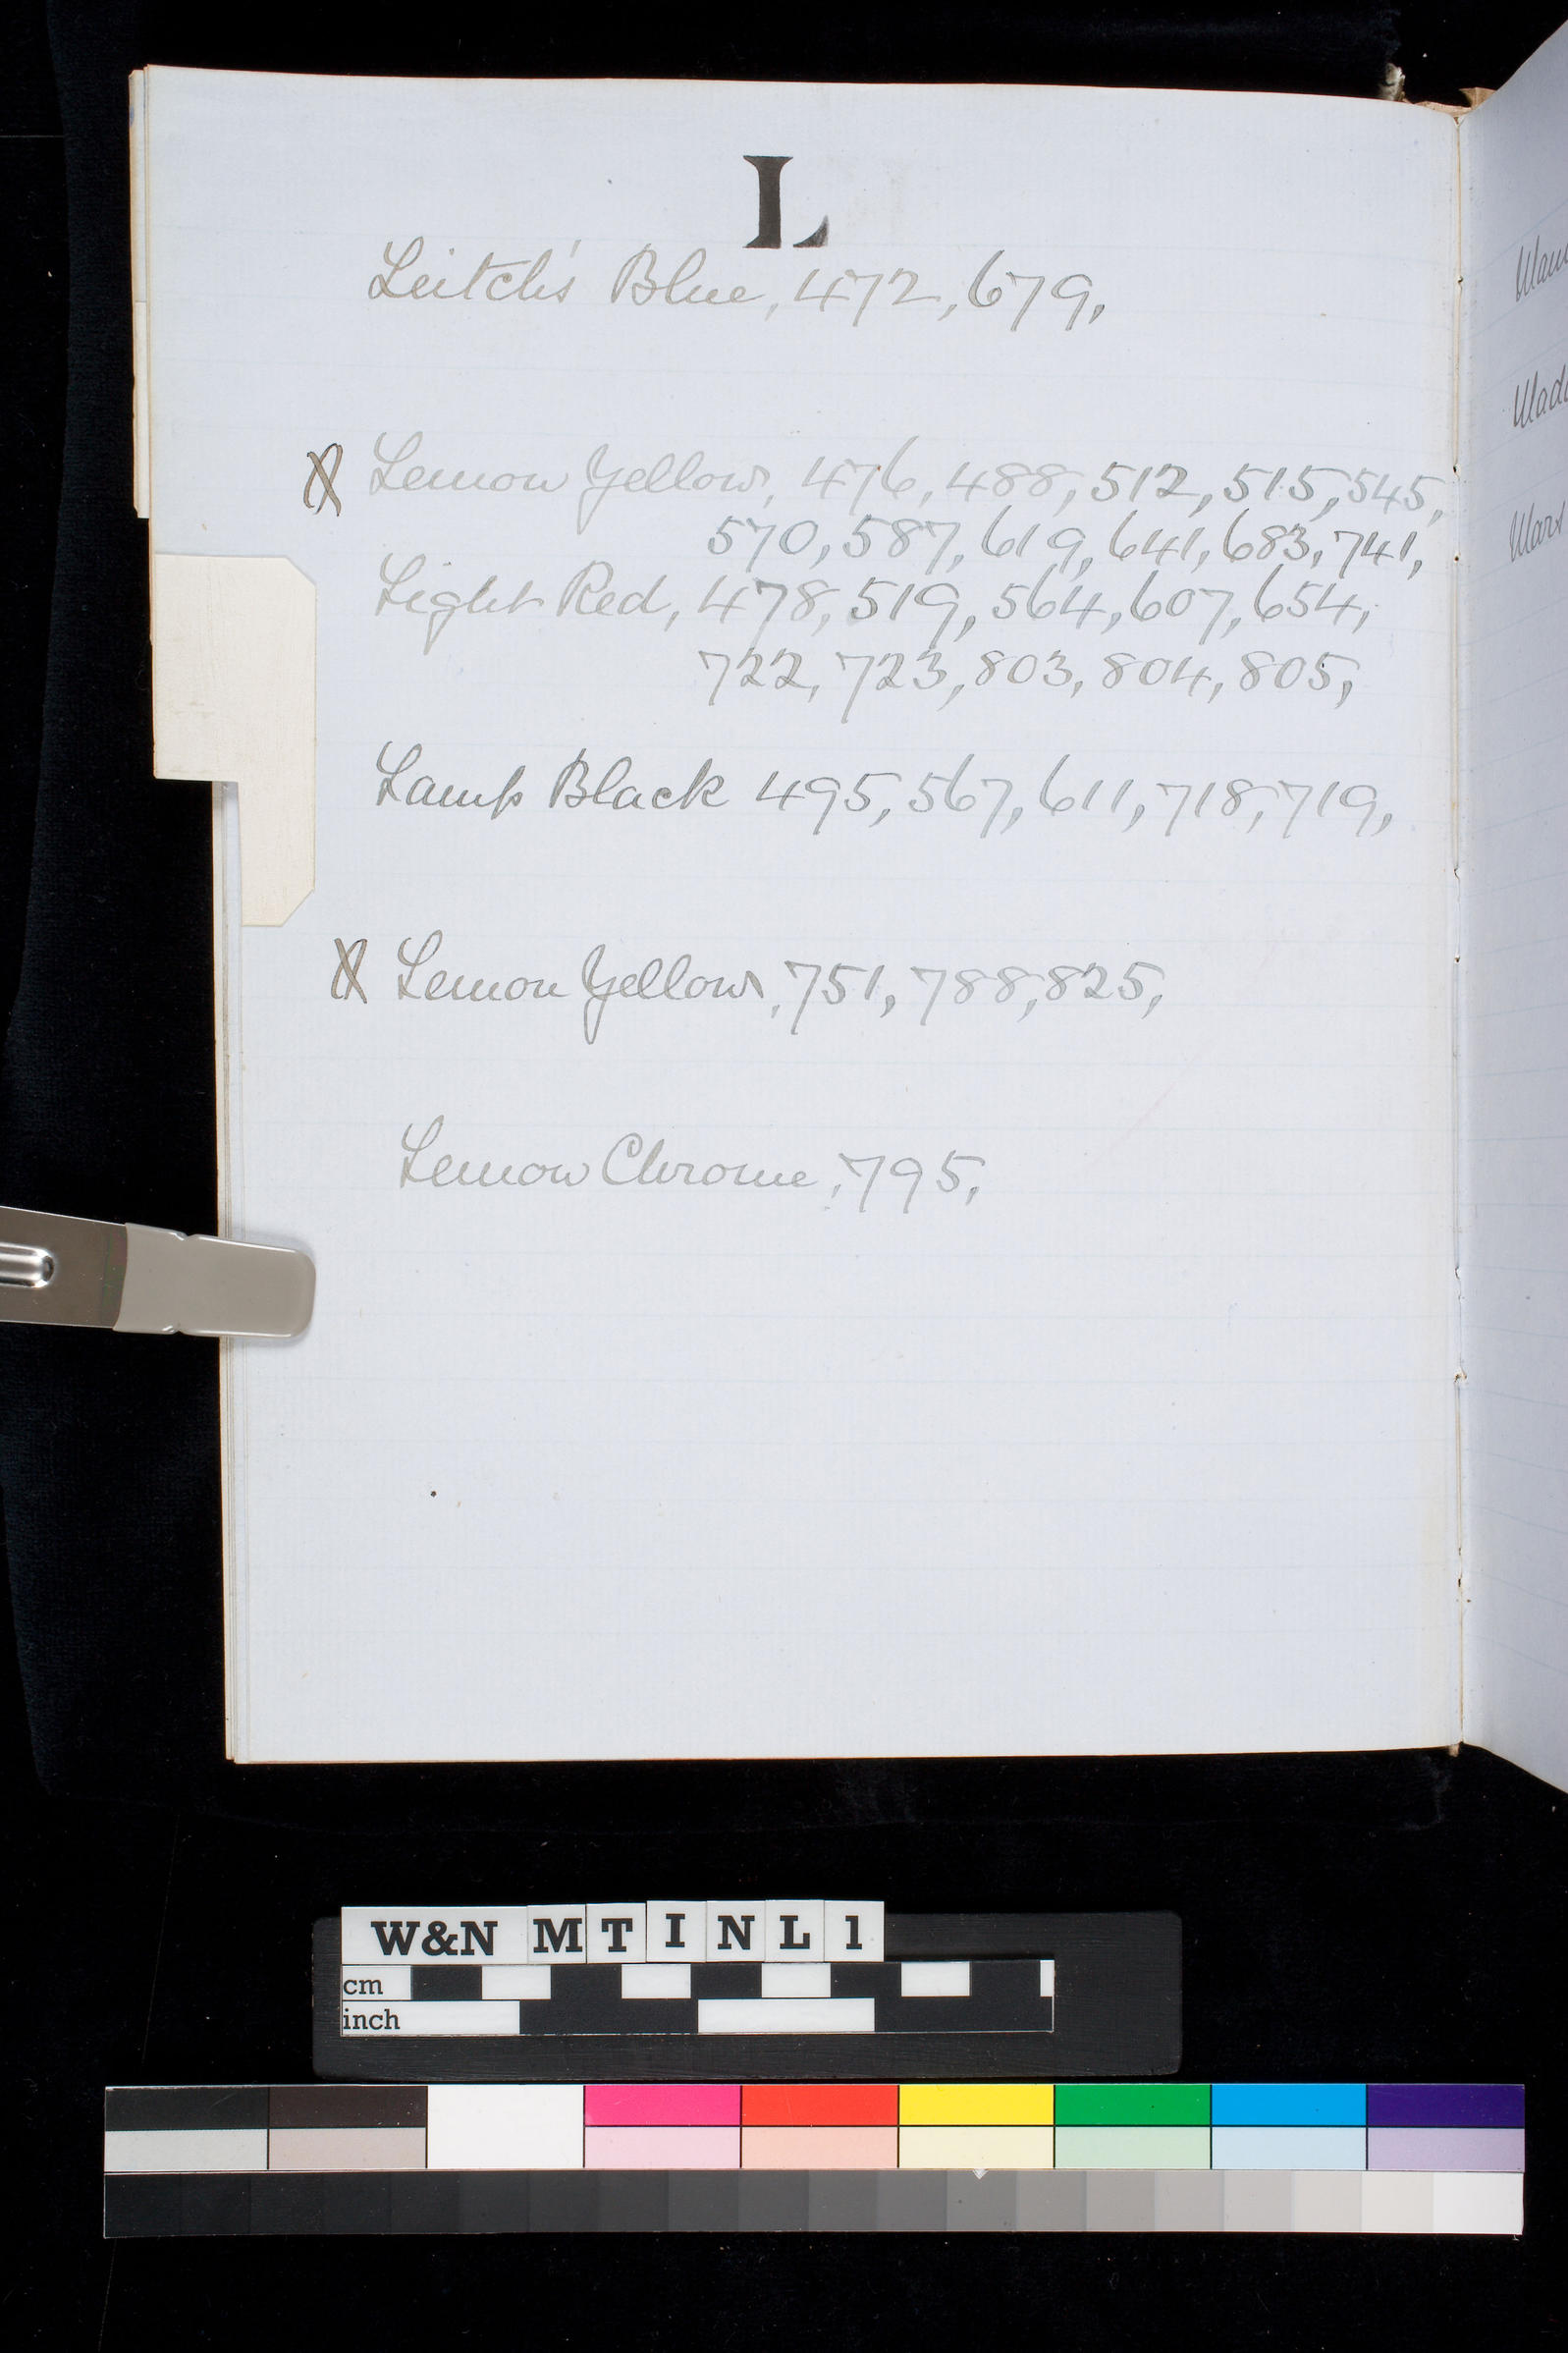 L
Leitch's Blue, 472, 679,
X Lemon Yellow, 476, 488, 512, 515, 545,
570, 587, 619, 641, 683, 741,
Light Red, 478, 519, 564, 607, 654,
722, 723, 803, 804, 805,
Lamp Black 495, 567, 611, 718, 719,
X Lemon Yellow, 751, 788, 825,
Lemon Chrome, 795,
W&N MTINL1
cm
inch